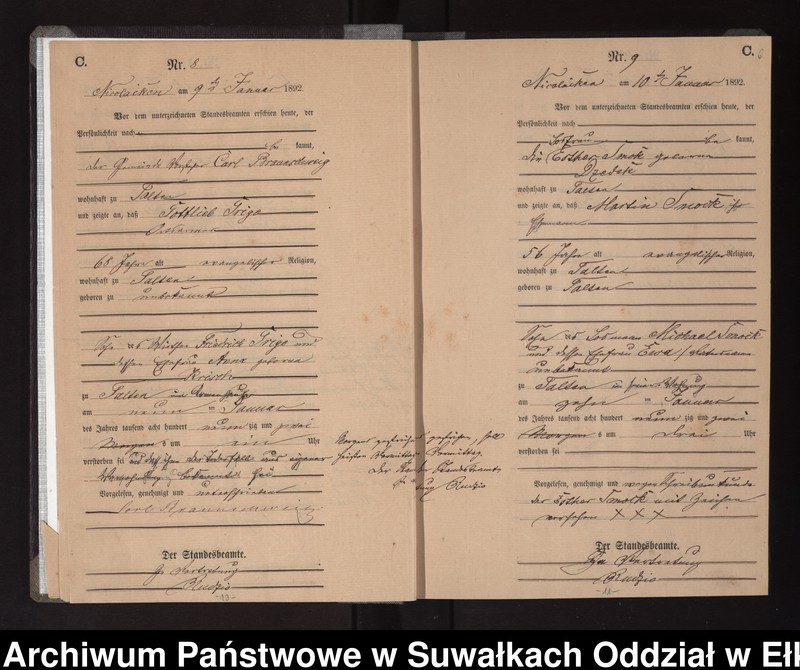 C.
Nr. 8
Nicolaiken am 9 ten Januar 1892.
Vor dem unterzeichneten Standesbeamten erschien heute, der
Persönlichkeit nach
be kannt,
der Gemeinde Vorsteher Carl Braunschweig
wohnhaft zu Talten
und zeigte an, daß Gottlieb Trigo
68 Jahre alt evangelischer Religion,
wohnhaft zu Talten
geboren zu unbekannt
Sohn des Wirthen Friedrich Trigo und
dessen Ehefrau Anna geborne
Krisch
zu Talten
am neun ten Januar
des Jahres tausend acht hundert neun zig und zwei
Morgens um ein Uhr
verstorben sei und daß ihm der Todesfall aus eigener
Vorgelesen, genehmigt und unterschrieben
Carl Braunschweig
Der Standesbeamte.
In Vertretung
Rudzio
-10-
Morgens gestrichen
Vormittag
Der Standesbeamte
Rudzio
C.
6
Nr. 9
Nicolaiken am 10 ten Januar 1892.
Vor dem unterzeichneten Standesbeamten erschien heute, der
Persönlichkeit nach
Losfrau be kannt,
die Esther Smok geborne
Dzedek
wohnhaft zu Talten
und zeigte an, daß Martin Smock, ihr
Ehemann
56 Jahre alt evangelischer Religion,
wohnhaft zu Talten
geboren zu Talten
Sohn des Losmann Michael Smock
und dessen Ehefrau Ewa
unbekannt
zu Talten in seiner Wohnung
am zehn ten Januar
des Jahres tausend acht hundert neun zig und zwei
Morgens um drei Uhr
verstorben sei
Vorgelesen, genehmigt und wegen Schreibunkunde
der Esther Smock mit Zeichen
versehen X X X
Der Standesbeamte.
In Vertretung
Rudzio
-11-
Archiwum Państwowe w Suwałkach Oddział w Eł